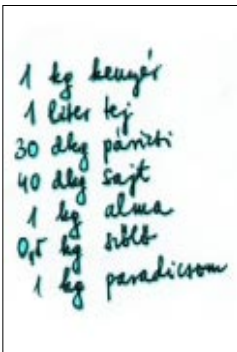 1 kg kenyér
1 liter tej
30 dkg párizsi
40 dkg sajt
1 kg alma
0,5 kg szőlő
1 kg paradicsom